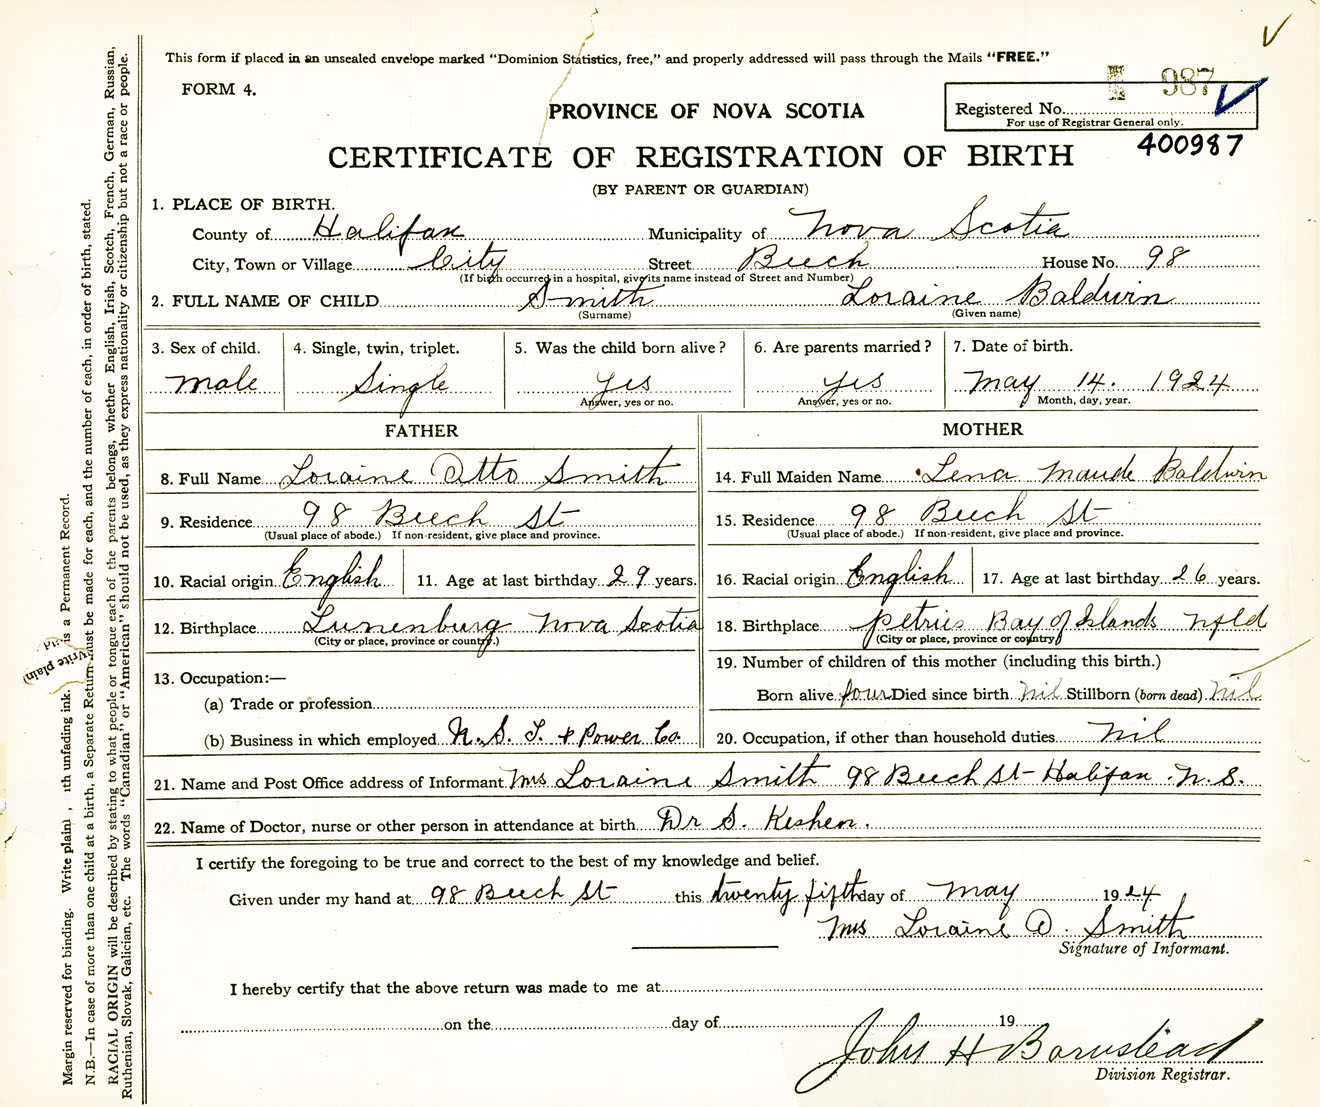 This form if placed in an unsealed envelope marked "Dominion Statistics, free," and properly addressed will pass through the Mails "FREE."
FORM 4.
987
PROVINCE OF NOVA SCOTIA
Registered No.
For use of Registrar General only.
400987
CERTIFICATE OF REGISTRATION OF BIRTH
(BY PARENT OR GUARDIAN)
1. PLACE OF BIRTH.
County of Halifax Municipality of Nova Scotia
City, Town or Village City Street Beech House No. 98
(If birth occurred in a hospital, give its name instead of Street and Number)
2. FULL NAME OF CHILD Smith Loraine Baldwin
(Surname) (Given name)
3. Sex of child. 4. Single, twin, triplet. 5. Was the child born alive? 6. Are parents married? 7. Date of birth.
Male Single Yes Yes May 14. 1924
Answer, yes or no. Answer, yes or no. Month, day, year.
FATHER MOTHER
8. Full Name Loraine Otto Smith 14. Full Maiden Name Lena Maude Baldwin
9. Residence 98 Beech St 15. Residence 98 Beech St
(Usual place of abode.) If non-resident, give place and province. (Usual place of abode.) If non-resident, give place and province.
10. Racial origin English 11. Age at last birthday 29 years. 16. Racial origin English 17. Age at last birthday 26 years.
12. Birthplace Lunenburg Nova Scotia 18. Birthplace Petries Bay of Islands Nfld
(City or place, province or country.) (City or place, province or country)
19. Number of children of this mother (including this birth.)
13. Occupation:—
(a) Trade or profession Born alive four Died since birth Nil Stillborn (born dead) Nil
(b) Business in which employed N. S. T. & Power Co. 20. Occupation, if other than household duties Nil
21. Name and Post Office address of Informant Mrs Loraine Smith 98 Beech St - Halifax. N. S.
22. Name of Doctor, nurse or other person in attendance at birth Dr S. Keshen.
I certify the foregoing to be true and correct to the best of my knowledge and belief.
Given under my hand at 98 Beech St this twenty fifth day of May 1924
Mrs Loraine O. Smith
Signature of Informant.
I hereby certify that the above return was made to me at
on the day of 19
John H Barnstead
Division Registrar.
Margin reserved for binding. Write plainl , ith unfading ink. is a Permanent Record.
Write plain
N.B.—In case of more than one child at a birth, a Separate Return must be made for each, and the number of each, in order of birth, stated.
RACIAL ORIGIN will be described by stating to what people or tongue each of the parents belongs, whether English, Irish, Scotch, French, German, Russian,
Ruthenian, Slovak, Galician, etc. The words "Canadian" or "American" should not be used, as they express nationality or citizenship but not a race or people.